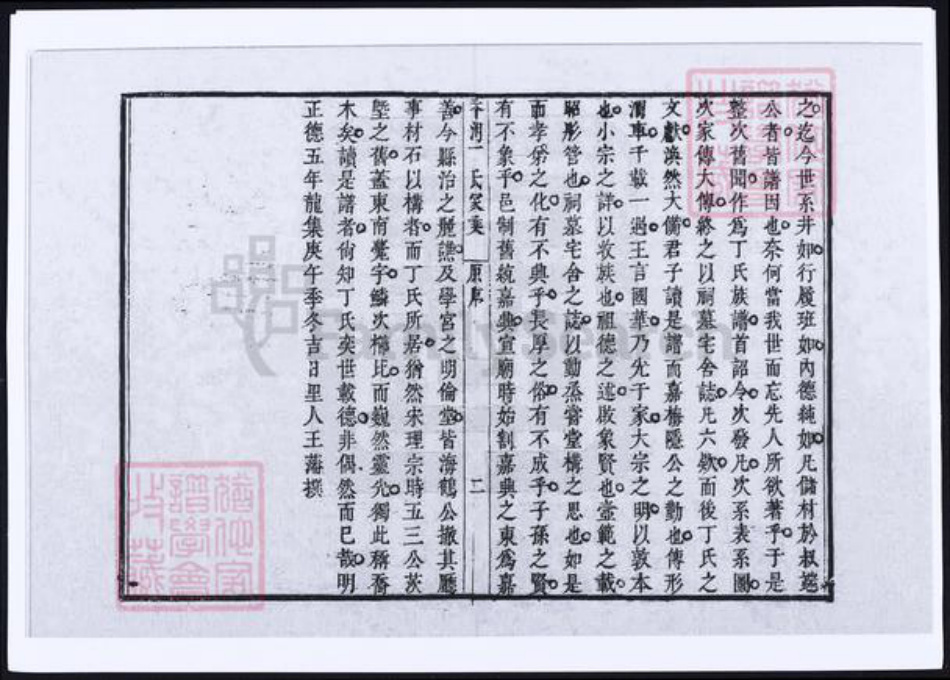 之迄今世系井如行履班如內德純如凡儲材於叔蕴
公者皆譜因也奈何當我世而忘先人所欲著乎于是
整次舊聞作爲丁氏族譜首詔令次發凡次系表系圖
次家傳大傳終之以祠墓宅舍誌凡六欵而後丁氏之
文獻渙然大備君子讀是譜而嘉梅隱公之勤也傳形
渭車千載一遇王言國華乃先于家大宗之明以敦本
也小宗之詳以收族也祖德之述啟象賢也壼範之載
昭彤管也祠墓宅舍之誌以勤烝嘗堂構之思也如是
而孝弟之化有不興乎長厚之俗有不成乎子孫之賢
有不象乎邑制舊統嘉興宣廟時始割嘉興之東爲嘉
平湖丁氏家乘 原序 二
善今縣治之麗譙及學宮之明倫堂皆海鶴公撤其廳
事材石以構者而丁氏所居猶然宋理宗時五三公茨
墍之舊蓋東南甍宇鱗次櫛比而巍然靈光獨此稱喬
木矣讀是譜者尙知丁氏奕世載德非偶然而已哉明
正德五年龍集庚午季冬吉日里人王藩撰
FamilySearch